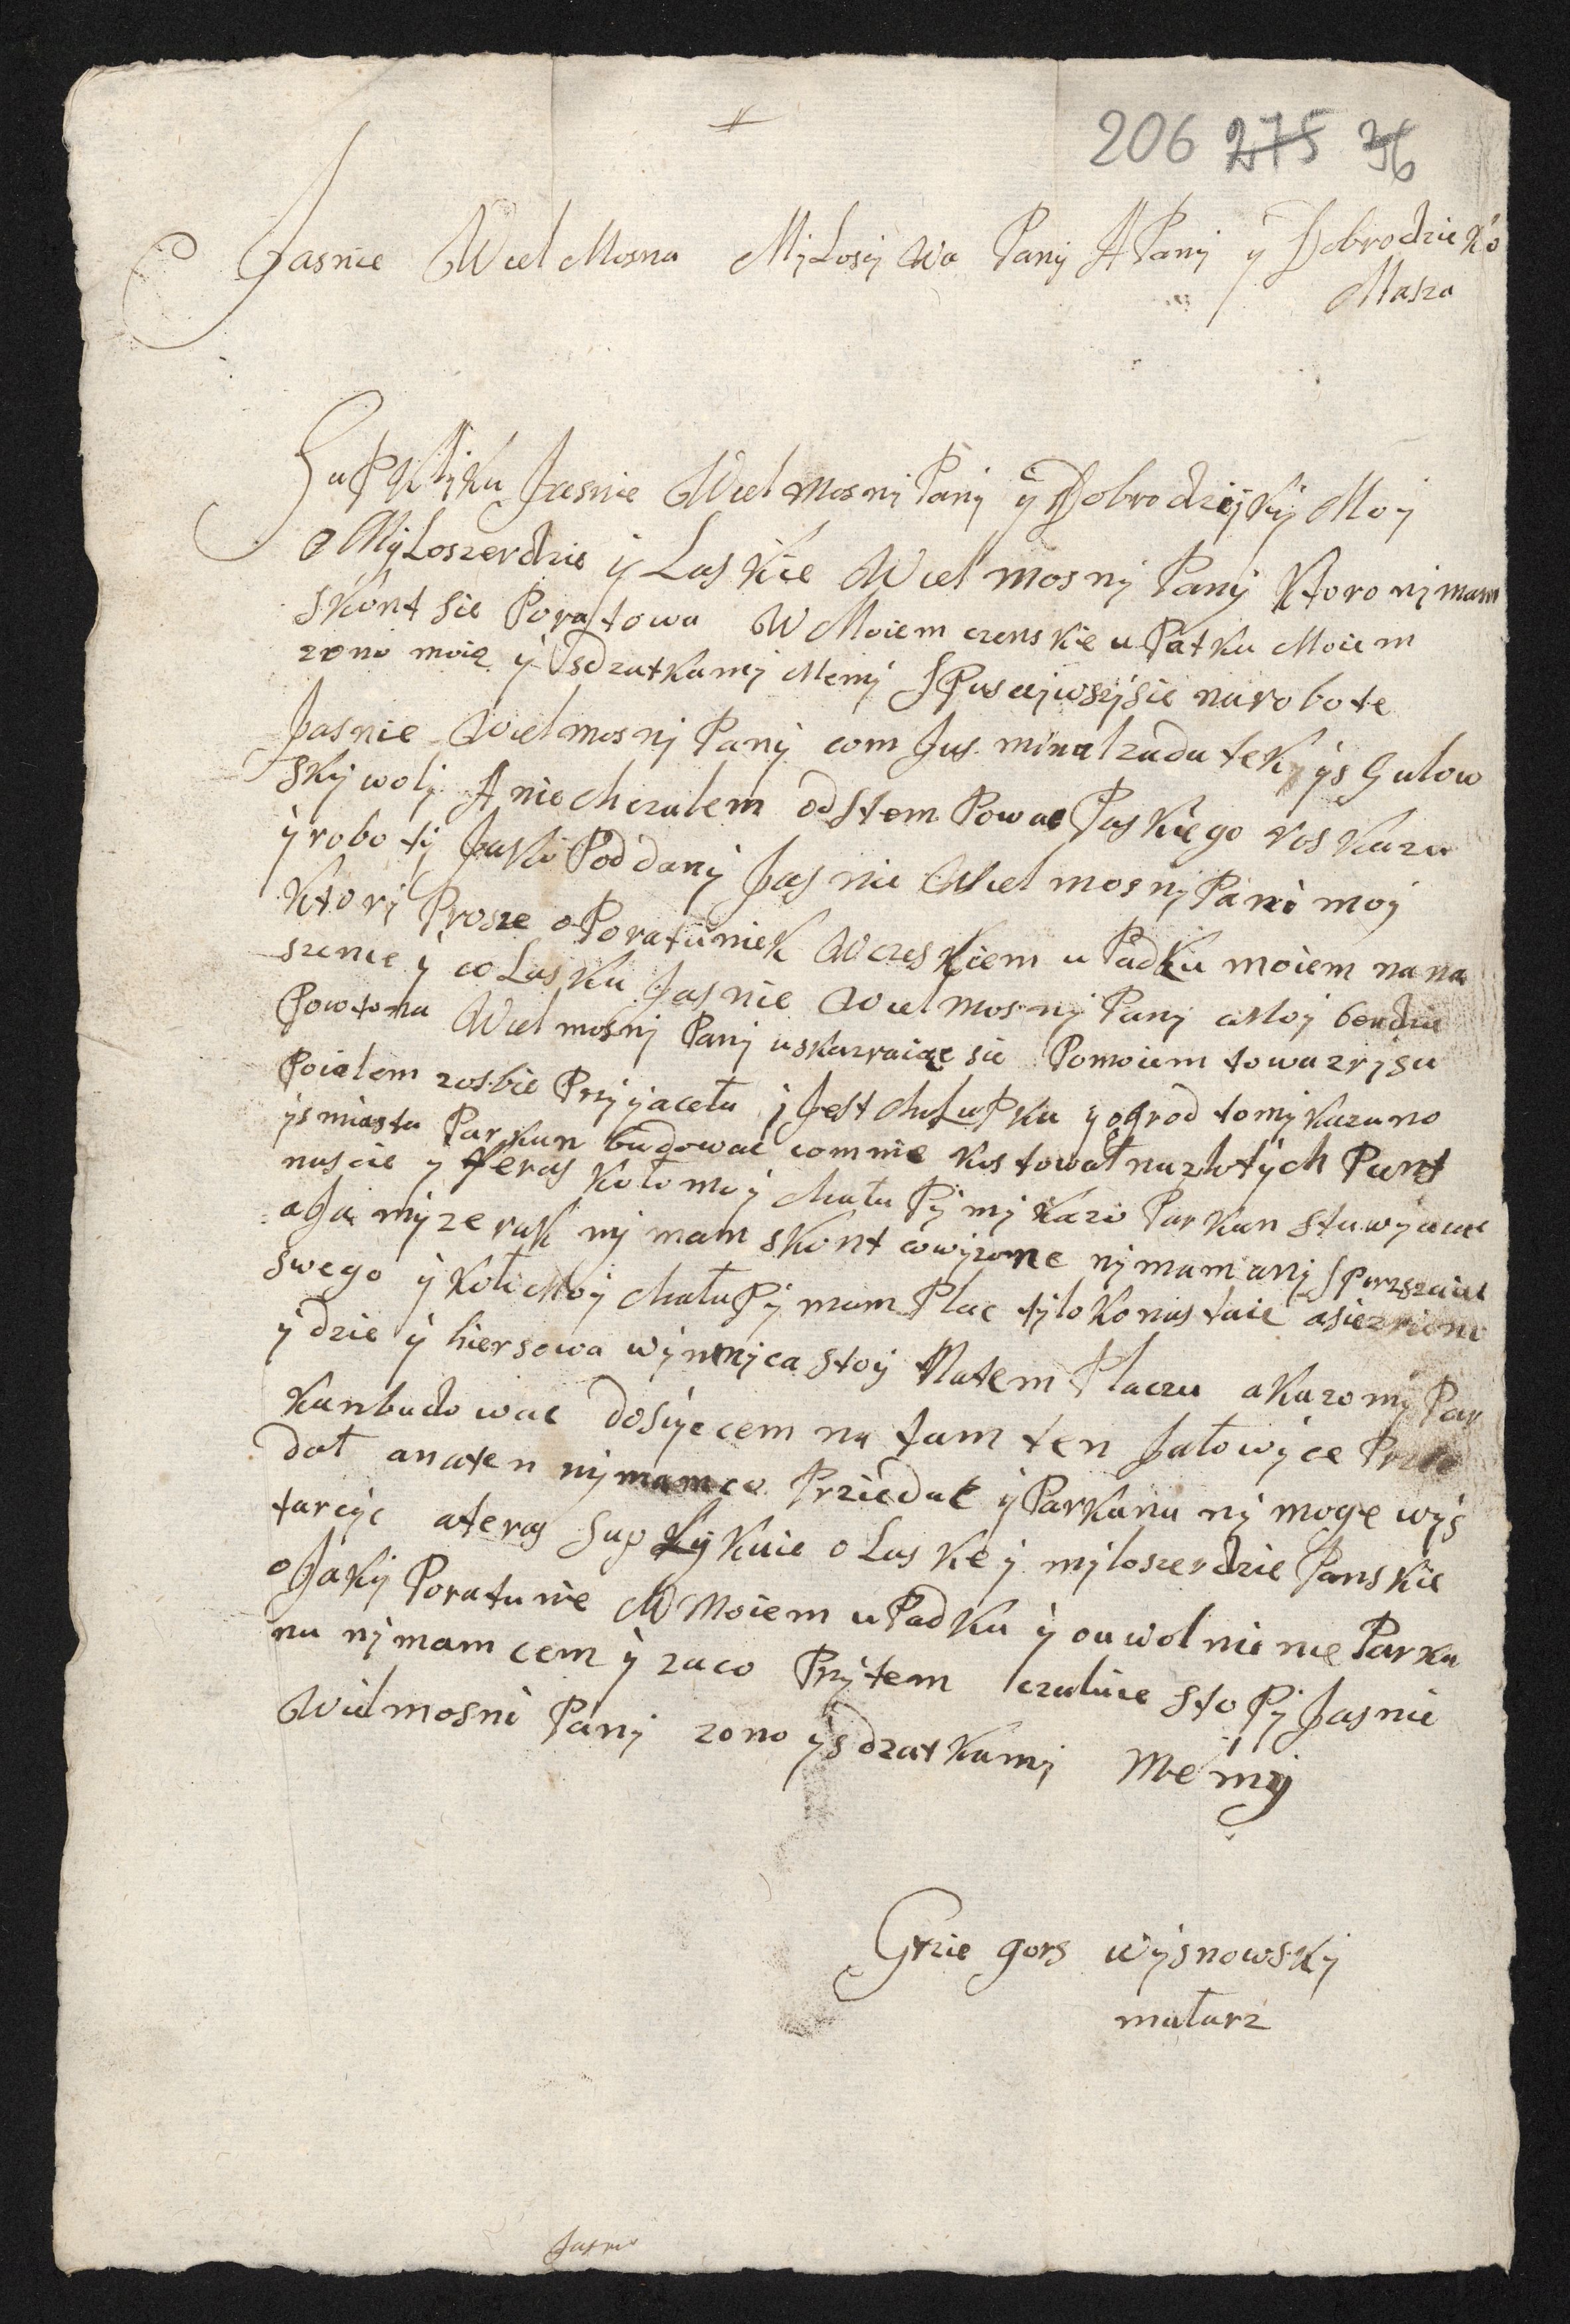 206 275 36
Jasnie Wiel Mosna MyLoscy Wa Pany A Pany y Dobrodzieko
Masza
SuPKlyku Jasnie Wiel mosny Pany y Dobrodzieyky Moy
o MyLoszerdzie y Laskie Wiel mosny Pany Ktoro ny mam
skont sie Poratowa W Moiem czenskie u Patku Moiem
zono moie y sdzatkamy Memy SPuscywszysie na robote
Jasnie Wielmosny Pany com Jus minal zadatek ys Gulow
sky woly A nie chczalem odstem Powac Paskiego roskazu
y roboty Jako Poddany Jasnie Wiel mosny Pani moy
Ktory Prosze o Poratuniek W czeskiem u Padku moiem na na
szenie y co Laska Jasnie Wiel mosny Pany Moy bendzie
Powtora Wiel mosny Pany uskarzaiac sie Pomoiem towarzysu
Poialem zosbie Przyiacela y Jest chaluPka y ogrod to my kazano
ys miasta Parkan budowac com mie kostowal na zlotych Pient
nascie y teras kolo moy chaluPy my kazo Parkan stawyac
a Ja myzerak ny mam skont cowyzone ny mam any SPrzszaiu
swego y kolo Moy chaluPy mam Plac tylo konastaie a sie
ydzie y hiersowa wynnyca stoy Natem Placzu a kazo my Par
kan budowac dosyc cem na tamten Jalowyce Prze
dal an aten ny mam co Przedac y Parkanu ny moge wys
tarcyc a teras supLykuie o Laske y myloszerdzie Panskie
o Jaky Poratunie W Moiem uPadku y ouwolnienie Parka
nu ny mam cem y zaco Przytem czaluie stoPy Jasnie
Wielmosni Pany zono ysdzatkamy Memy
Grzie gors wysnowsky
malarz
Jasnie